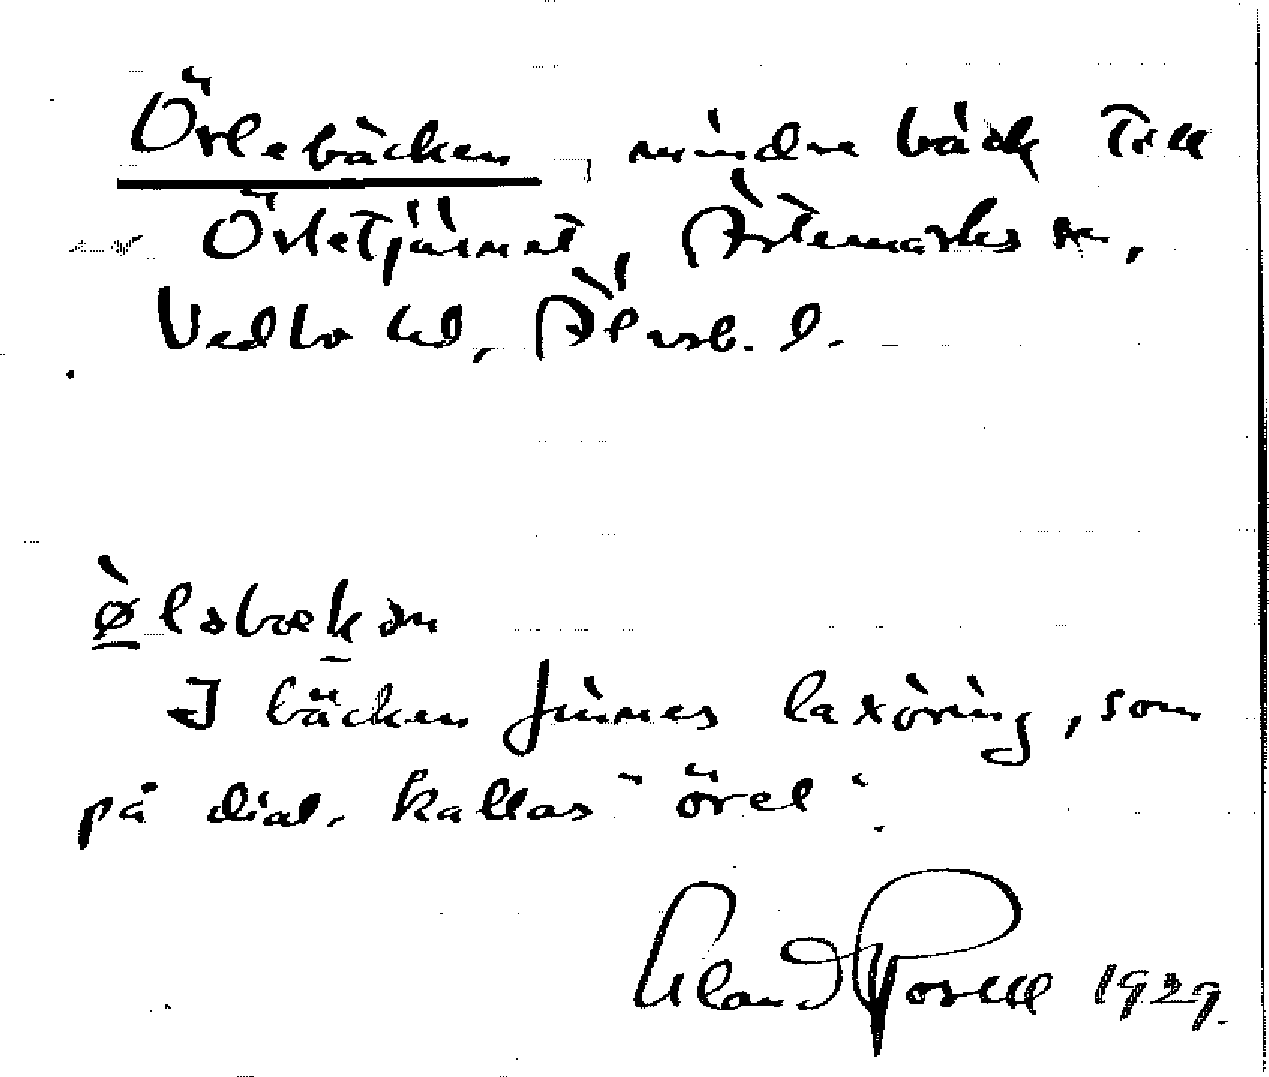 Örlebäcken, mindre bäck till
Örletjärnet, Ärtemarks sn,
Vedbo hd, Älvsb. l.
I bäcken finnes laxöring, som
på dial. kallas "örel".
1929.